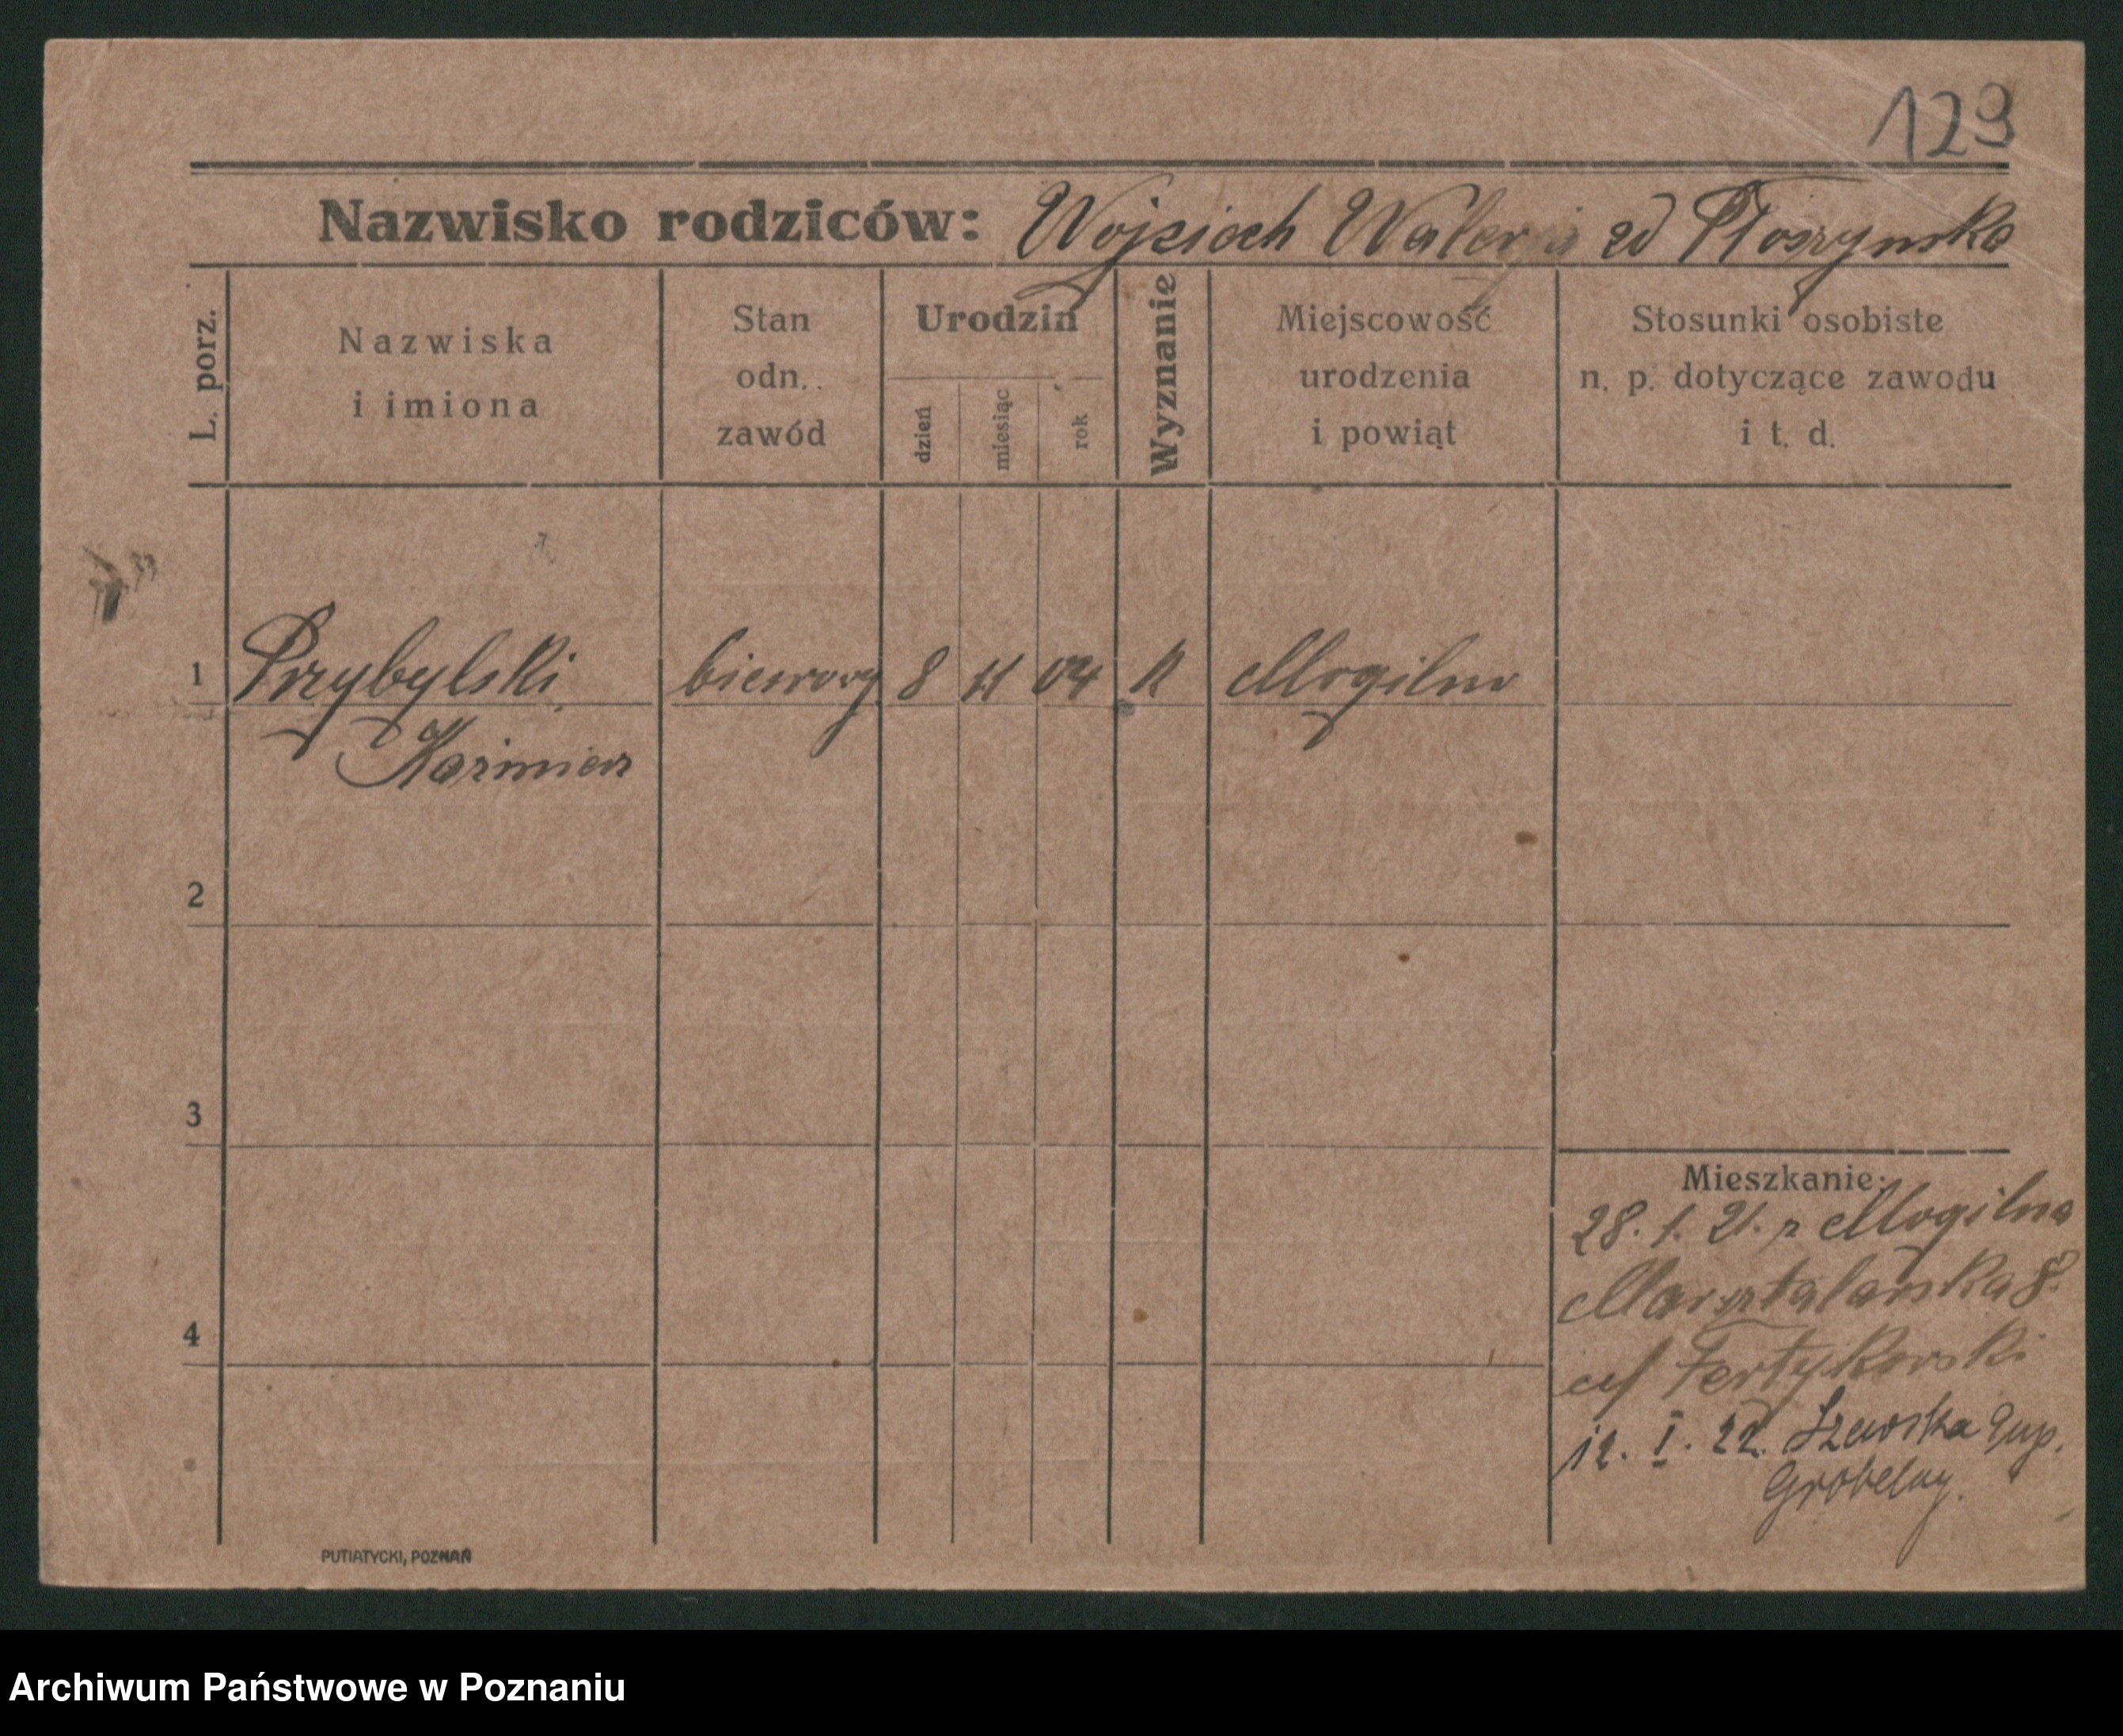 129
Nazwisko rodziców: Wojciech Walerja zd
L. porz.
Nazwiska
i imiona
Stan
odn.
zawód
Urodzin
dzień
miesiąc
rok
Wyznanie
Miejscowość
urodzenia
i powiąt
Stosunki osobiste
n. p. dotyczące zawodu
i t. d.
1 Przybylski biurowy 8 04 K Mogilno
Kaźmierz
2
3
4
Mieszkanie:
28. 1. 21. z Mogilna
Masztalarska 8.
12. I. 22. Szewska
Grobelny.
PUTIATYCKI, POZNAŃ
Archiwum Państwowe w Poznaniu